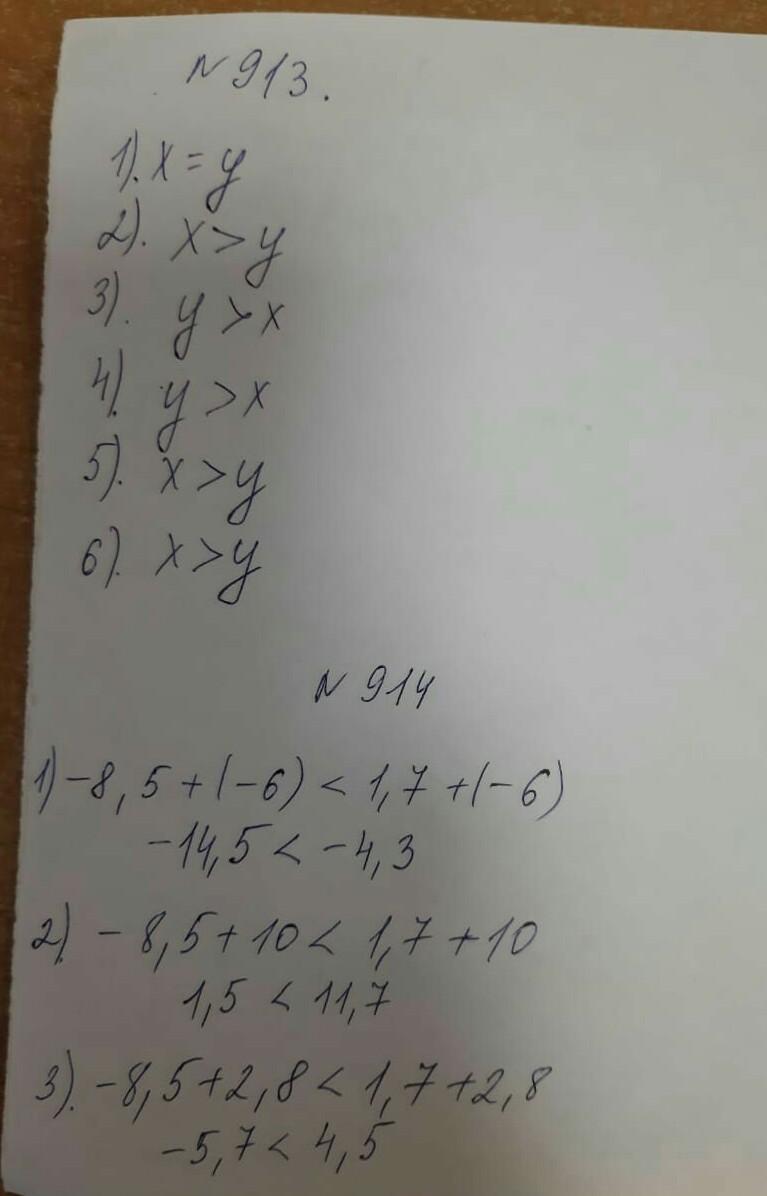 N 913.
1). x = y
2). x > y
3). y > x
4). y > x
5). x > y
6). x > y
N 914
1) -8,5 + (-6) < 1,7 + (-6)
-14,5 < -4,3
2). - 8,5 + 10 < 1,7 + 10
1,5 < 11,7
3). -8,5 + 2,8 < 1,7 + 2,8
-5,7 < 4,5